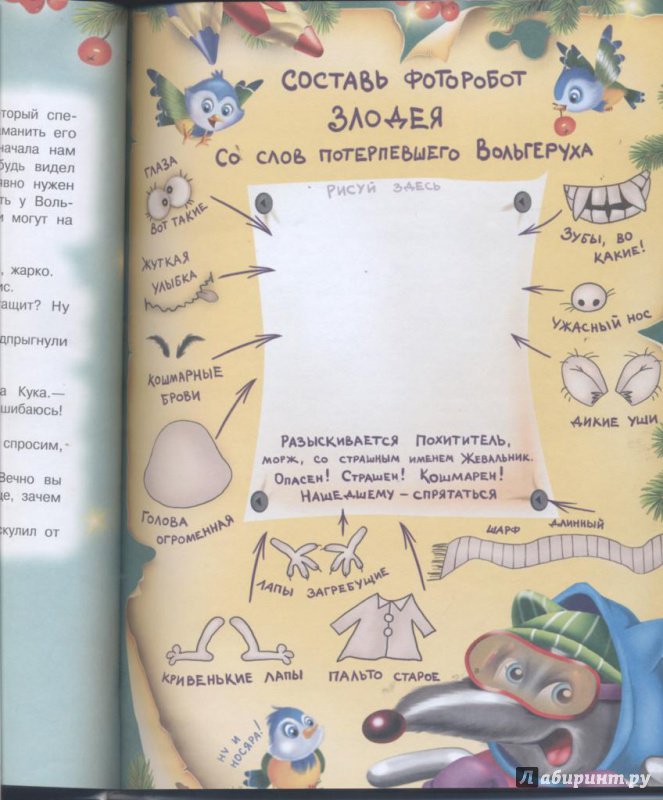 оторый спе-
аманить его
начала нам
будь видел
явно нужен
ть у Воль-
и могут на
, жарко.
ис.
тащит? Ну
дпрыгнули
а Кука.—
шибаюсь!
спросим,-
Вечно вы
це, зачем
скулил от
СОСТАВЬ ФОТОРОБОТ
ЗЛОДЕЯ
СО СЛОВ ПОТЕРПЕВШЕГО ВОЛЬГЕРУХА
ГЛАЗА
ВОТ ТАКИЕ
ЖУТКАЯ
УЛЫБКА
КОШМАРНЫЕ
БРОВИ
ГОЛОВА
ОГРОМЕННАЯ
РИСУЙ ЗДЕСЬ
РАЗЫСКИВАЕТСЯ ПОХИТИТЕЛЬ,
МОРЖ, СО СТРАШНЫМ ИМЕНЕМ ЖЕВАЛЬНИК.
ОПАСЕН! СТРАШЕН! КОШМАРЕН!
НАШЕДШЕМУ – СПРЯТАТЬСЯ
ЗУБЫ, ВО
КАКИЕ!
УЖАСНЫЙ НОС
ДИКИЕ УШИ
ШАРФ ДЛИННЫЙ
ЛАПЫ ЗАГРЕБУЩИЕ
КРИВЕНЬКИЕ ЛАПЫ
ПАЛЬТО СТАРОЕ
НУ И
НОСЯРА!
Лабиринт.ру